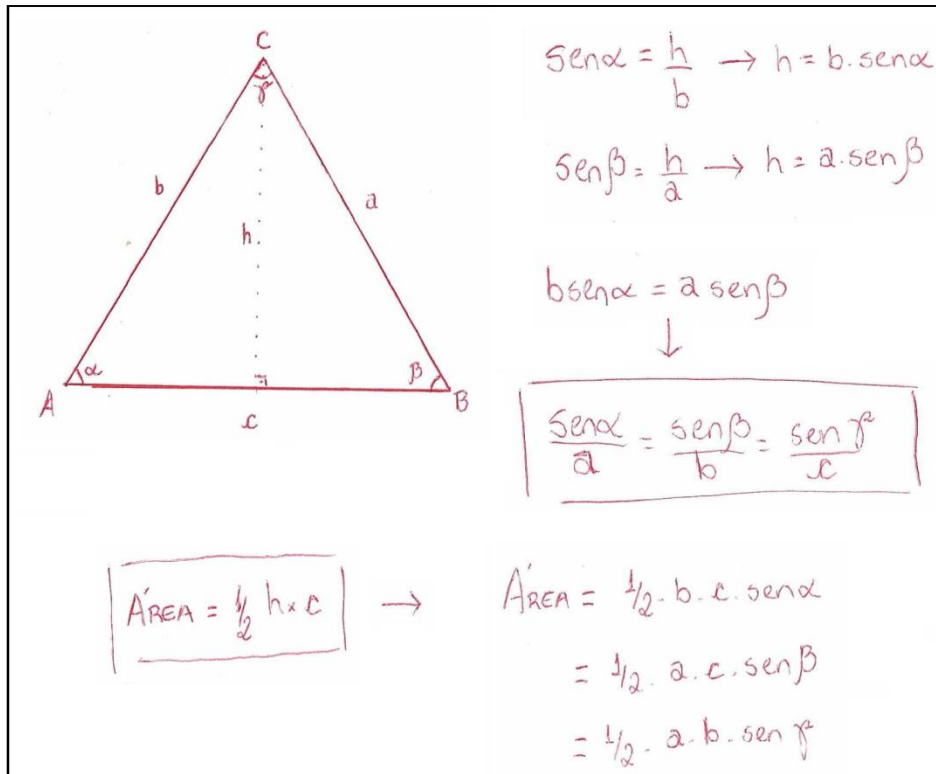 C
γ
b
a
h
α
β
A
B
c
senα = h/b → h = b.senα
senβ = h/a → h = a.senβ
bsenα = a senβ
↓
senα/a = senβ/b = sen γ/c
ÁREA = 1/2 h×c → ÁREA = 1/2.b.c.senα
= 1/2. a.c.senβ
= 1/2. a.b.sen γ